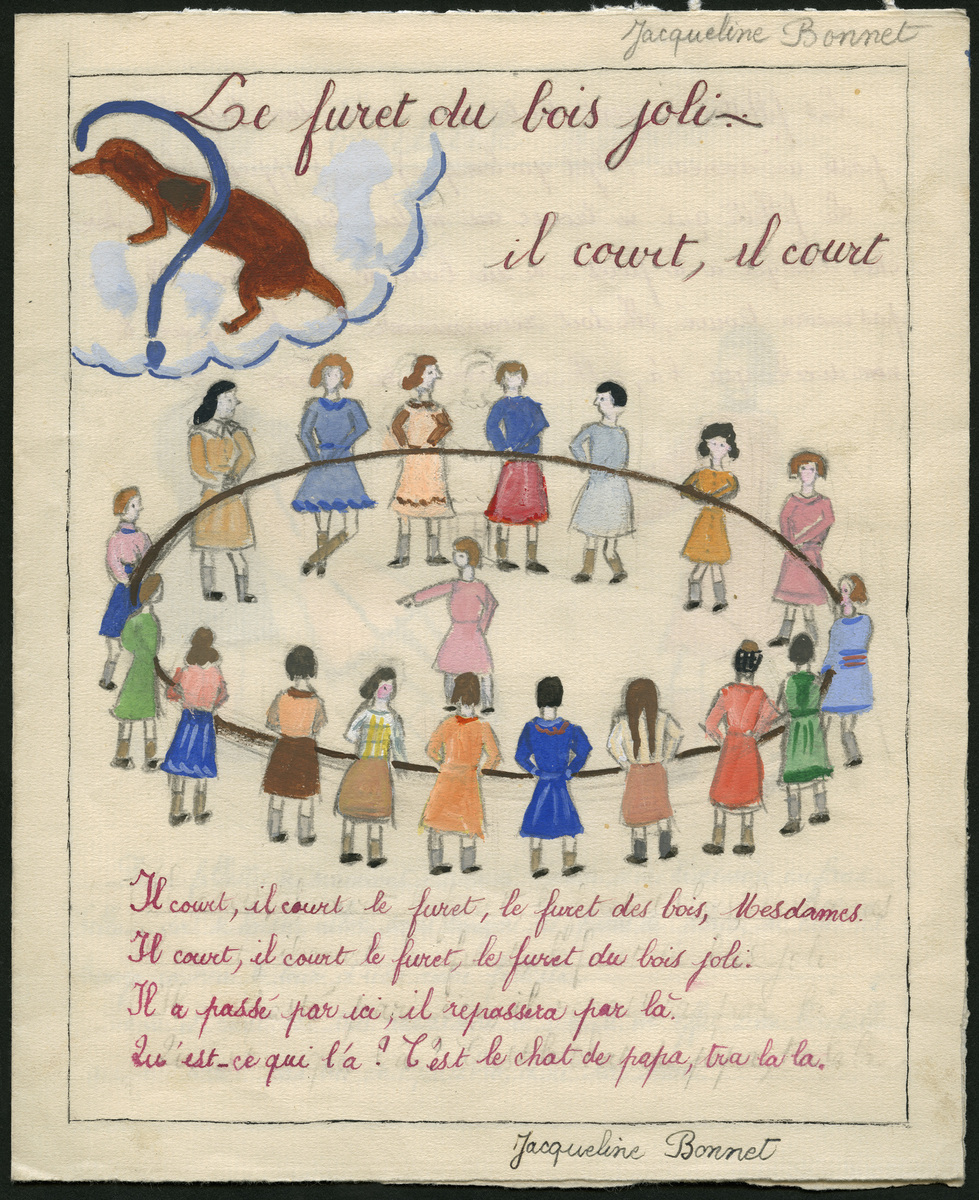 Jacqueline Bonnet
Le furet du bois joli
il court, il court
Il court, il court le furet, le furet des bois, Mesdames.
Il court, il court le furet, le furet du bois joli.
Il a passé par ici, il repassera par là.
Qu'est-ce qui l'a ? C'est le chat de papa, tra la la.
Jacqueline Bonnet